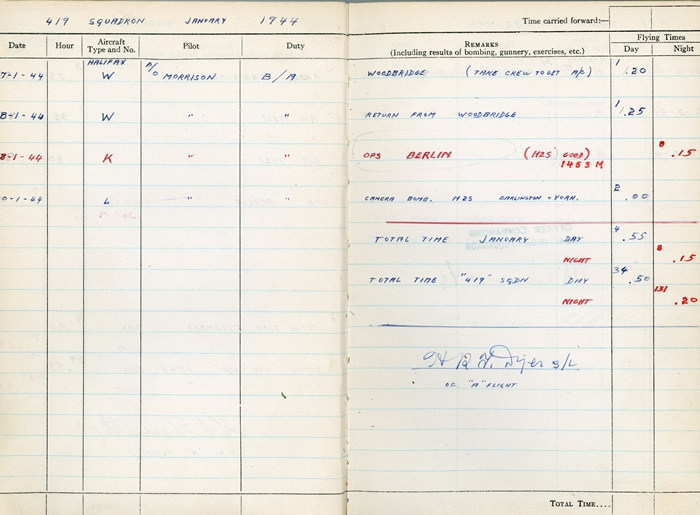 419 SQUADRON JANUARY 1944
Time carried forward:—
Date Hour Aircraft Type and No. Pilot Duty REMARKS (Including results of bombing, gunnery, exercises, etc.) Flying Times Day Night
7-1-44 HALIFAX W P/O MORRISON B/A WOODBRIDGE (TAKE CREW TO GET A/C) 1.20
8-1-44 W " " RETURN FROM WOODBRIDGE 1.25
K " " OPS BERLIN (H2S GOOD) 1463 M 8.15
0-1-44 L " " CAMERA BOMB. H2S DARLINGTON - YORK. 2.00
TOTAL TIME JANUARY DAY 4.55
NIGHT 8.15
TOTAL TIME "419" SQDN DAY 34.50
NIGHT 131.20
S/L
OC. "A" FLIGHT
TOTAL TIME....